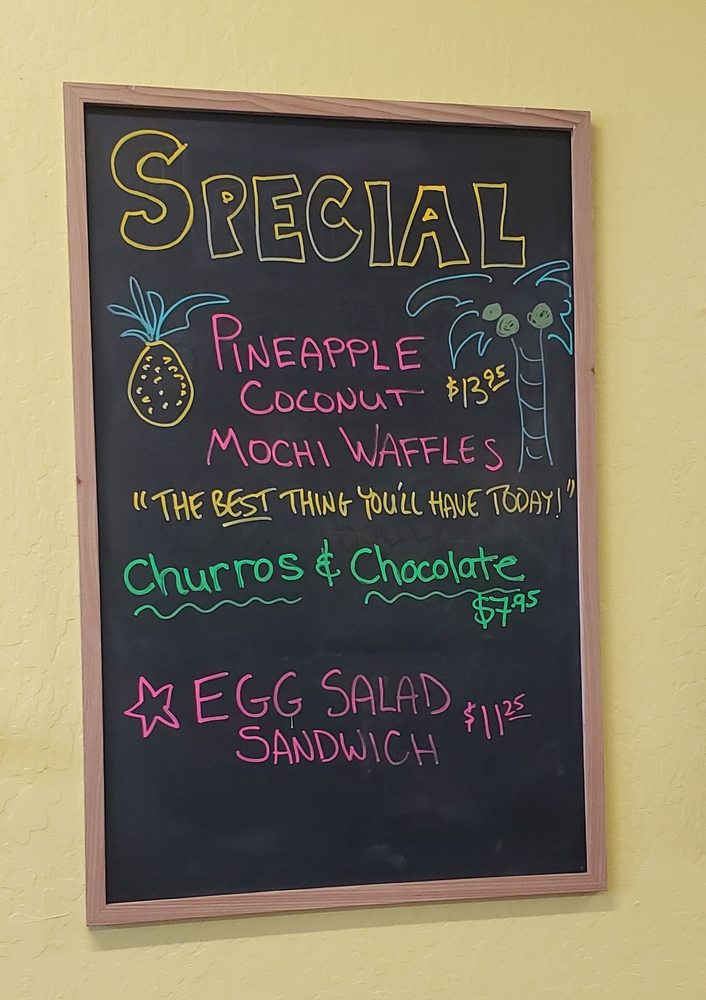 SPECIAL
PINEAPPLE
COCONUT $13.95
MOCHI WAFFLES
"THE BEST THING YOU'LL HAVE TODAY!"
Churros & Chocolate
$7.95
EGG SALAD
SANDWICH $11.25